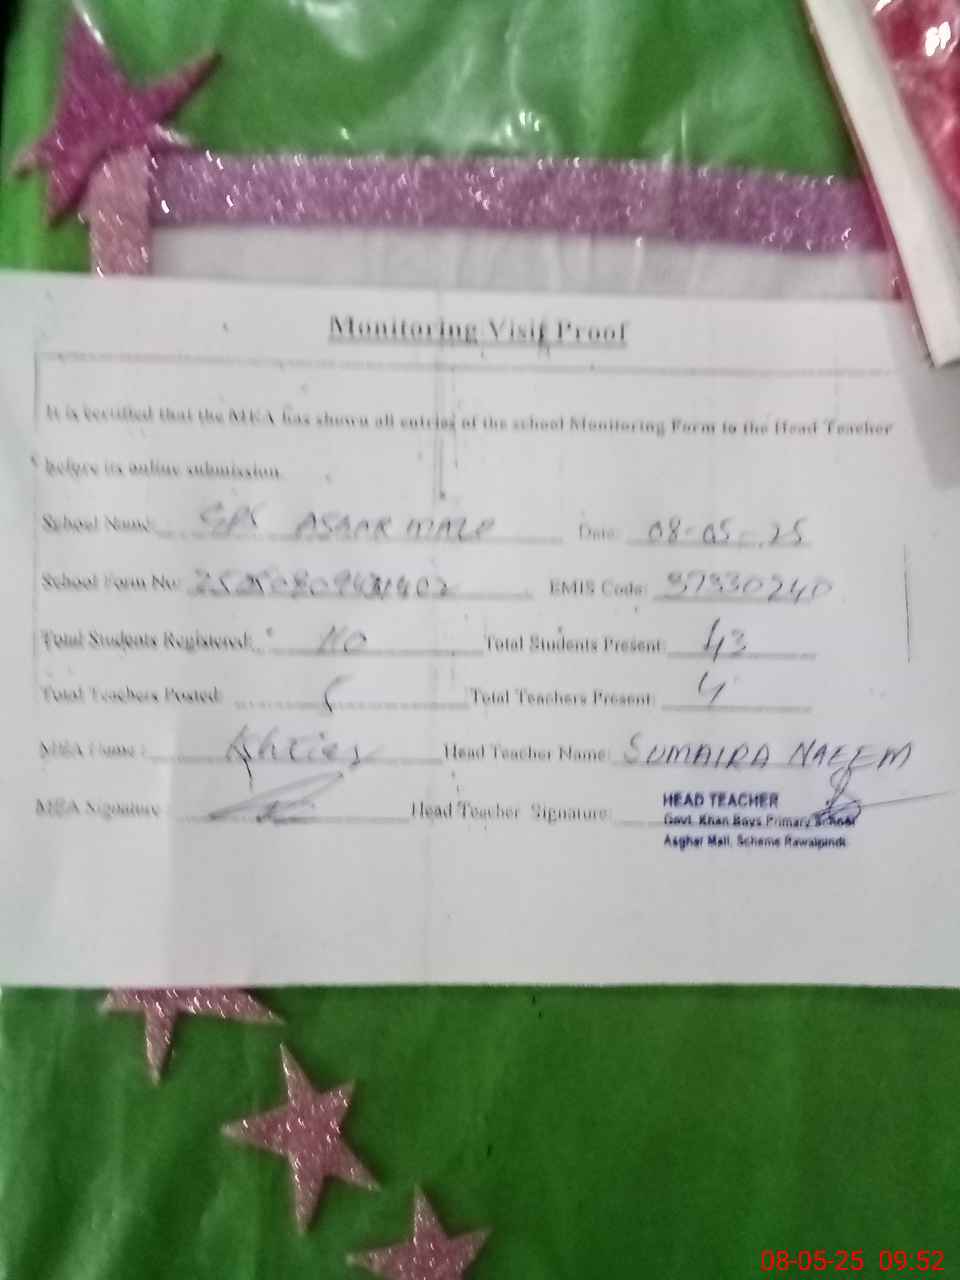 Monitoring Visit Proof
It is certified that the MEA has shown all entries of the school Monitoring Form to the Head Teacher
before its online submission.
School Name: GPS ASGAR MALL Date: 08-05-25
School Form No: EMIS Code: 37330240
Total Students Registered: 110 Total Students Present: 43
Total Teachers Posted: 5 Total Teachers Present: 4
MEA Name: Head Teacher Name: SUMAIRA NAEEM
MEA Signature: Head Teacher Signature:
HEAD TEACHER
Govt. Khan Boys Primary School
Asghar Mall, Scheme Rawalpindi.
08-05-25 09.52